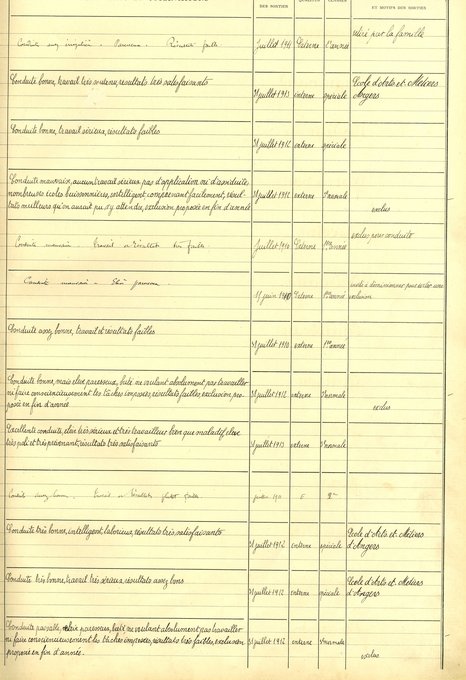 DES SORTIES
ET MOTIFS DES SORTIES
retiré par la famille
Conduite assez irrégulière. Paresseux. Résultats faibles
Juillet 1911 Externe 1re année
Conduite bonne, travail très soutenu, résultats très satisfaisants
31 juillet 1913 interne spéciale
Ecole d'Arts et Métiers
Angers
Conduite bonne, travail sérieux, résultats faibles
31 juillet 1912 externe spéciale
Conduite mauvaise, aucun travail sérieux pas d'application ni d'assiduité
nombreuses écoles buissonnières, intelligent comprenant facilement, résul-
tats meilleurs qu'on aurait pu s'y attendre, exclusion proposée en fin d'année
31 juillet 1912 externe normale
exclus
Conduite mauvaise. Travail et résultats très faibles
Juillet 1910 Externe 1re année
exclus pour conduite
Conduite mauvaise. Elève paresseux
17 juin 1910 Externe 1re année
exclusion
Conduite assez bonne, travail et résultats faibles
31 juillet 1910 externe 1re année
Conduite bonne, mais élève paresseux, buté ne voulant absolument pas travailler
ni faire consciencieusement les tâches imposées, résultats faibles, exclusion pro-
posée en fin d'année
31 juillet 1912 externe normale
exclus
Excellente conduite, élève très sérieux et très travailleur bien que maladif, élève
très poli et très prévenant, résultats très satisfaisants
31 juillet 1913 externe normale
Conduite assez bonne. Travail et résultats plutôt faibles
juillet 1911 E 2e
Conduite très bonne, intelligent, laborieux, résultats très satisfaisants
31 juillet 1912 interne spéciale
Ecole d'Arts et Métiers
d'Angers
Conduite très bonne, travail très sérieux, résultats assez bons
31 juillet 1912 interne spéciale
Ecole d'Arts et Métiers
d'Angers
Conduite passable, élève paresseux, buté ne voulant absolument pas travailler
ni faire consciencieusement les tâches imposées, résultats très faibles, exclusion
proposée en fin d'année.
31 juillet 1912 externe normale
exclus